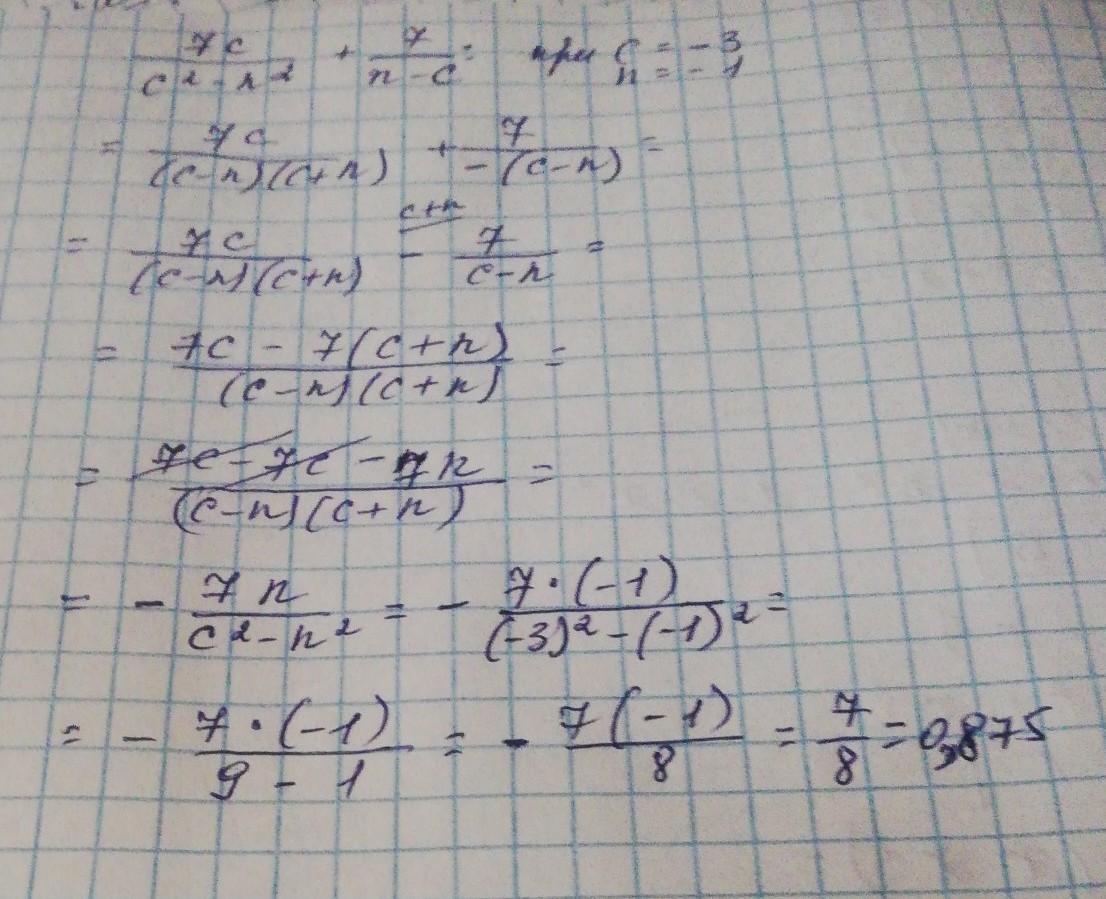 7c/(c² - n²) + 7/(n - c) = при c = -3 n = -1
= 7c/((c-n)(c+n)) + 7/(-(c-n)) =
= 7c/((c-n)(c+n)) - 7/(c-n) = c+n
= (7c - 7(c+n))/((c-n)(c+n)) =
= (7c - 7c - 7n)/((c-n)(c+n)) =
= - 7n/(c² - n²) = - 7·(-1)/((-3)² - (-1)²) =
= - 7·(-1)/(9 - 1) = - 7(-1)/8 = 7/8 = 0,875